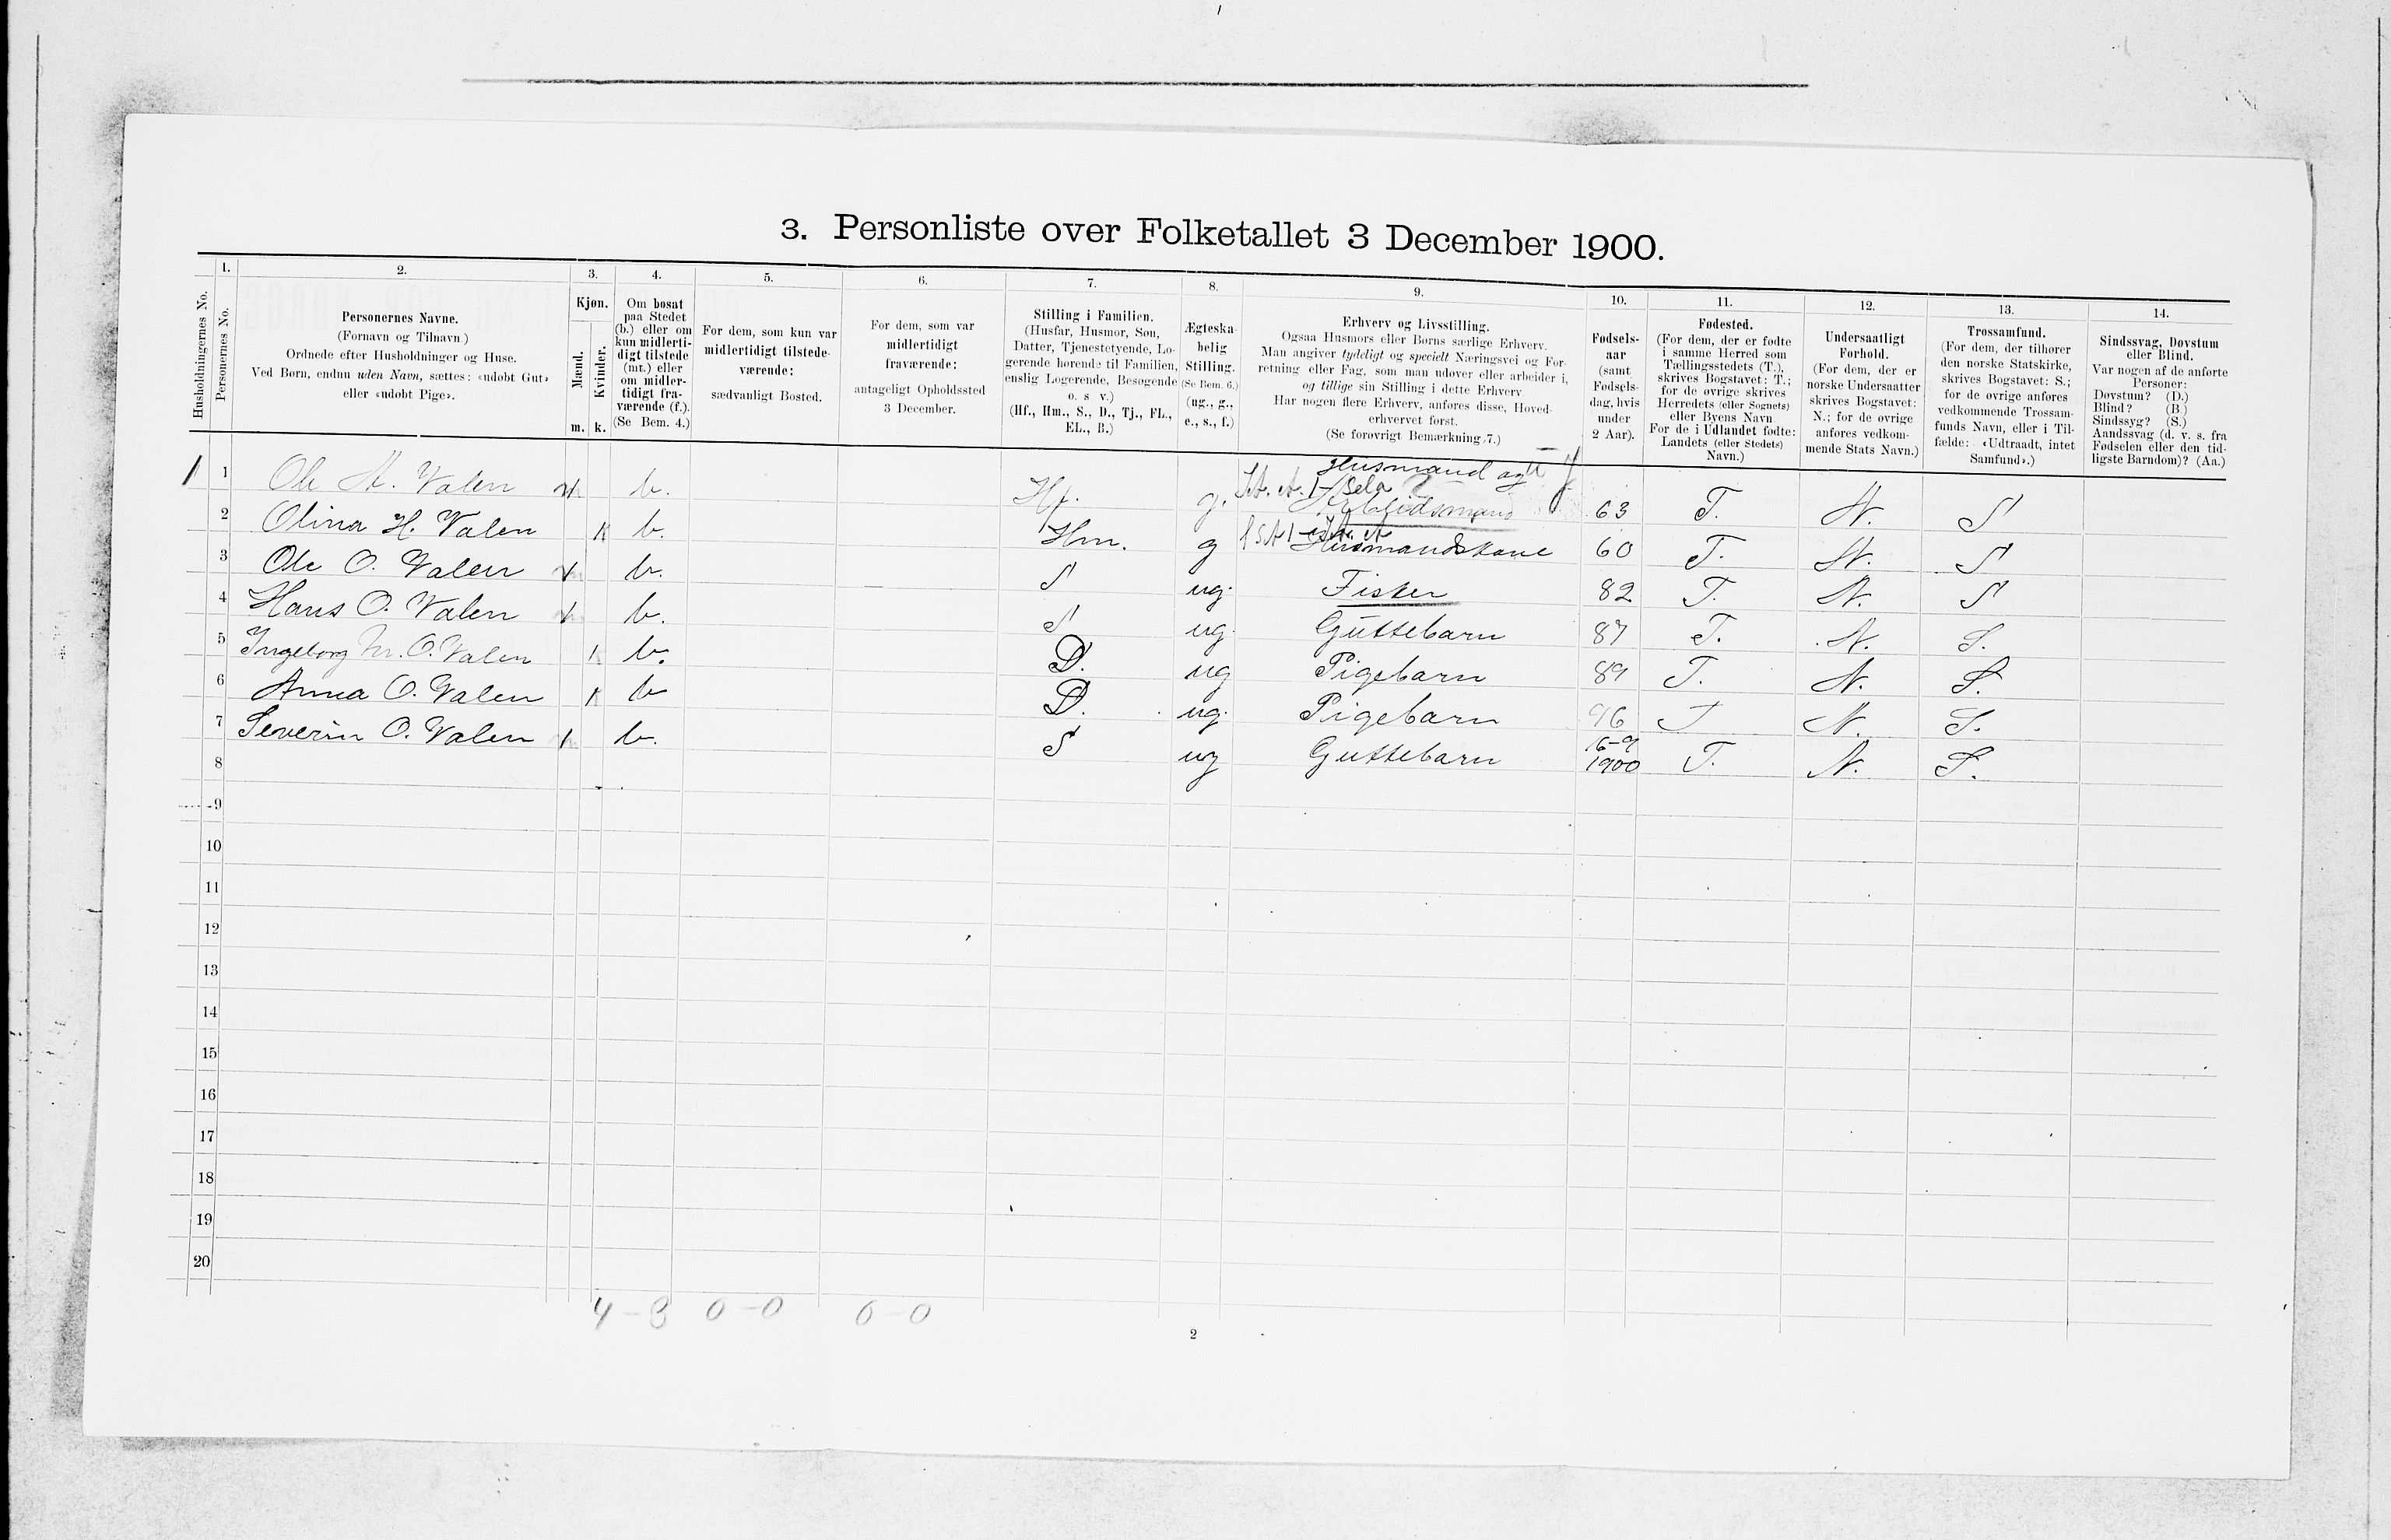 3. Personliste over Folketallet 3 December 1900.
Husholdningernes No.
1.
Personernes No.
2.
Personernes Navne.
(Fornavn og Tilnavn.)
Ordnede efter Husholdninger og Huse.
Ved Børn, endnu uden Navn, sættes: «udøbt Gut»
eller «udøbt Pige».
3.
Kjøn.
Mænd.
Kvinder.
m. k.
4.
Om bosat
paa Stedet
(b.) eller om
kun midlerti-
digt tilstede
(mt.) eller
om midler-
tidigt fra-
værende (f.).
(Se Bem. 4.)
5.
For dem, som kun var
midlertidigt tilstede-
værende:
sædvanligt Bosted.
6.
For dem, som var
midlertidigt
fraværende:
antageligt Opholdssted
3 December.
7.
Stilling i Familien.
(Husfar, Husmor, Søn,
Datter, Tjenestetyende, Lo-
gerende hørende til Familien,
enslig Logerende, Besøgende
o. s. v.)
(Hf., Hm., S., D., Tj., FL.,
EL., B.)
8.
Ægteska-
belig
Stilling.
(Se Bem. 6.)
(ug., g.,
e., s., f.)
9.
Erhverv og Livsstilling.
Ogsaa Husmors eller Børns særlige Erhverv.
Man angiver tydeligt og specielt Næringsvei og For-
retning eller Fag, som man udøver eller arbeider i,
og tillige sin Stilling i dette Erhverv.
Har nogen flere Erhverv, anføres disse, Hoved-
erhvervet først.
(Se forøvrigt Bemærkning 7.)
10.
Fødsels-
aar
(samt
Fødsels-
dag, hvis
under
2 Aar).
11.
Fødested.
(For dem, der er fødte
i samme Herred som
Tællingsstedets (T.),
skrives Bogstavet: T.;
for de øvrige skrives
Herredets (eller Sognets)
eller Byens Navn.
For de i Udlandet fødte:
Landets (eller Stedets)
Navn.)
12.
Undersaatligt
Forhold.
(For dem, der er
norske Undersaatter
skrives Bogstavet:
N.; for de øvrige
anføres vedkom-
mende Stats Navn.)
13.
Trossamfund.
(For dem, der tilhører
den norske Statskirke,
skrives Bogstavet: S.;
for de øvrige anføres
vedkommende Trossam-
funds Navn, eller i Til-
fælde: «Udtraadt, intet
Samfund».)
14.
Sindssvag, Døvstum
eller Blind.
Var nogen af de anførte
Personer:
Døvstum? (D.)
Blind? (B.)
Sindssyg? (S.)
Aandssvag (d. v. s. fra
Fødselen eller den tid-
ligste Barndom)? (Aa.)
1 1 Ole A. Valen m b. Hf. g. Husmand Arbeidsmand 63 T. N. S
2 Olina H. Valen k b. Hm. g Husmandskone 60 T. N. S
3 Ole O. Valen b. S ug. Fisker 82 T. N. S
4 Hans O. Valen b. S ug. Guttebarn 87 T. N. S.
5 Ingeborg O. Valen k b. D. ug Pigebarn 89 T. N. S.
6 Anna O. Valen k b D. ug. Pigebarn 96 T N. S.
7 Severin O. Valen b. S ug Guttebarn 16-9 1900 T. N. S.
8
9
10
11
12
13
14
15
16
17
18
19
20
4 - 3 0 - 0 0 - 0
2